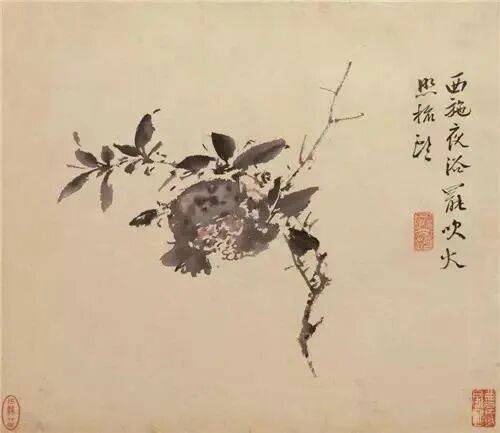 西施夜浴罷吹火
照梳頭